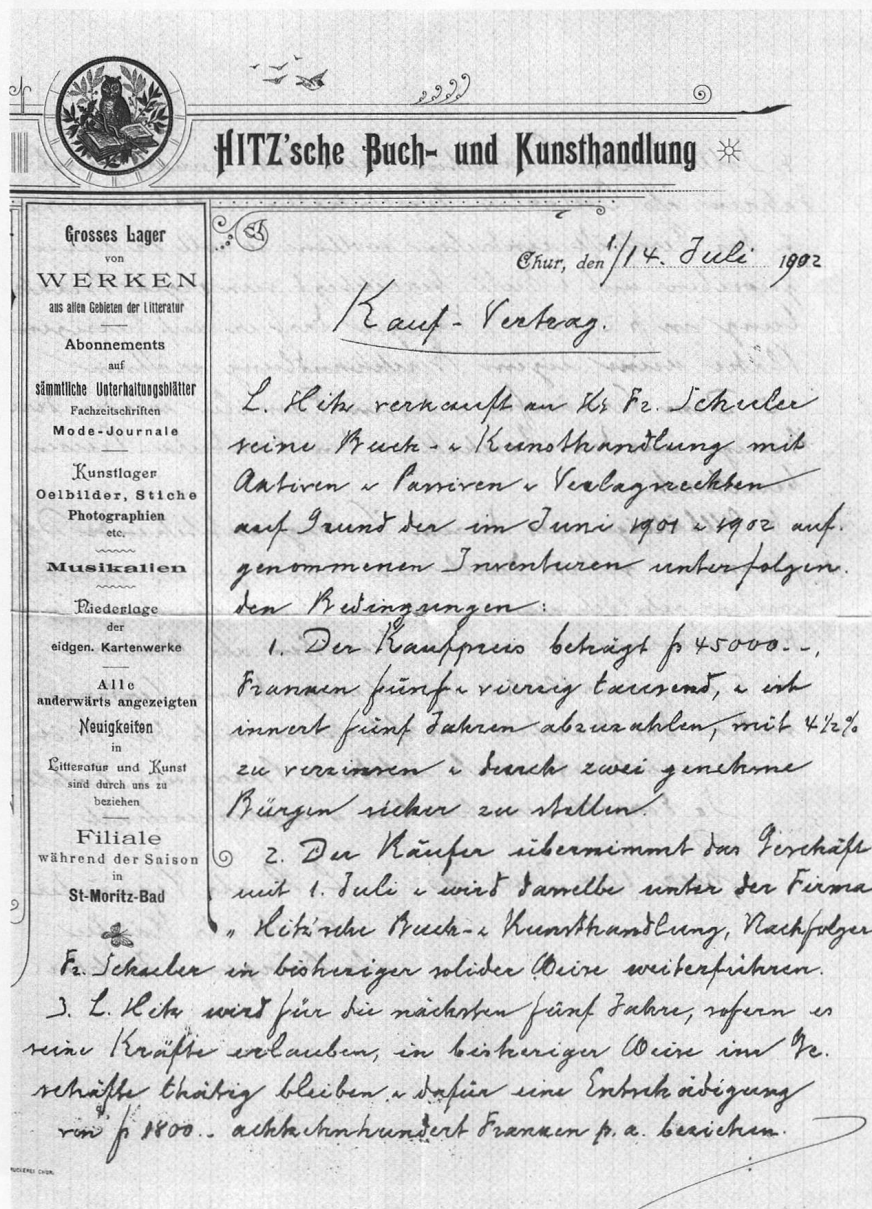 HITZ'sche Buch- und Kunsthandlung
Grosses Lager
von
WERKEN
aus allen Gebieten der Litteratur
Abonnements
auf
sämmtliche Unterhaltungsblätter
Fachzeitschriften
Mode-Journale
Kunstlager
Oelbilder, Stiche
Photographien
etc.
Musikalien
Niederlage
der
eidgen. Kartenwerke
Alle
anderwärts angezeigten
Neuigkeiten
in
Litteratur und Kunst
sind durch uns zu
beziehen
Filiale
während der Saison
in
St-Moritz-Bad
Chur, den 1./14. Juli 1902
Kauf-Vertrag.
L. Hitz verkauft an Hr Fr. Schuler
seine Buch- & Kunsthandlung mit
Aktiven & Passiven & Verlagsrechten
auf Grund der im Juni 1901 & 1902 auf-
genommenen Inventuren unter folgen-
den Bedingungen:
1. Der Kaufpreis beträgt fr 45000.-,
Franken fünf & vierzig tausend, & ist
innert fünf Jahren abzuzahlen, mit 4 1/2 %
zu verzinsen & durch zwei genehme
Bürgen sicher zu stellen.
2. Der Käufer übernimmt das Geschäft
mit 1. Juli & wird dasselbe unter der Firma
„ Hitz'sche Buch- & Kunsthandlung, Nachfolger
Fr. Schuler in bisheriger solider Weise weiterführen.
3. L. Hitz wird für die nächsten fünf Jahre, sofern es
seine Kräfte erlauben, in bisheriger Weise im Ge-
schäfte thätig bleiben & dafür eine Entschädigung
von fr 1800.- achtzehnhundert Franken p. a. beziehen.